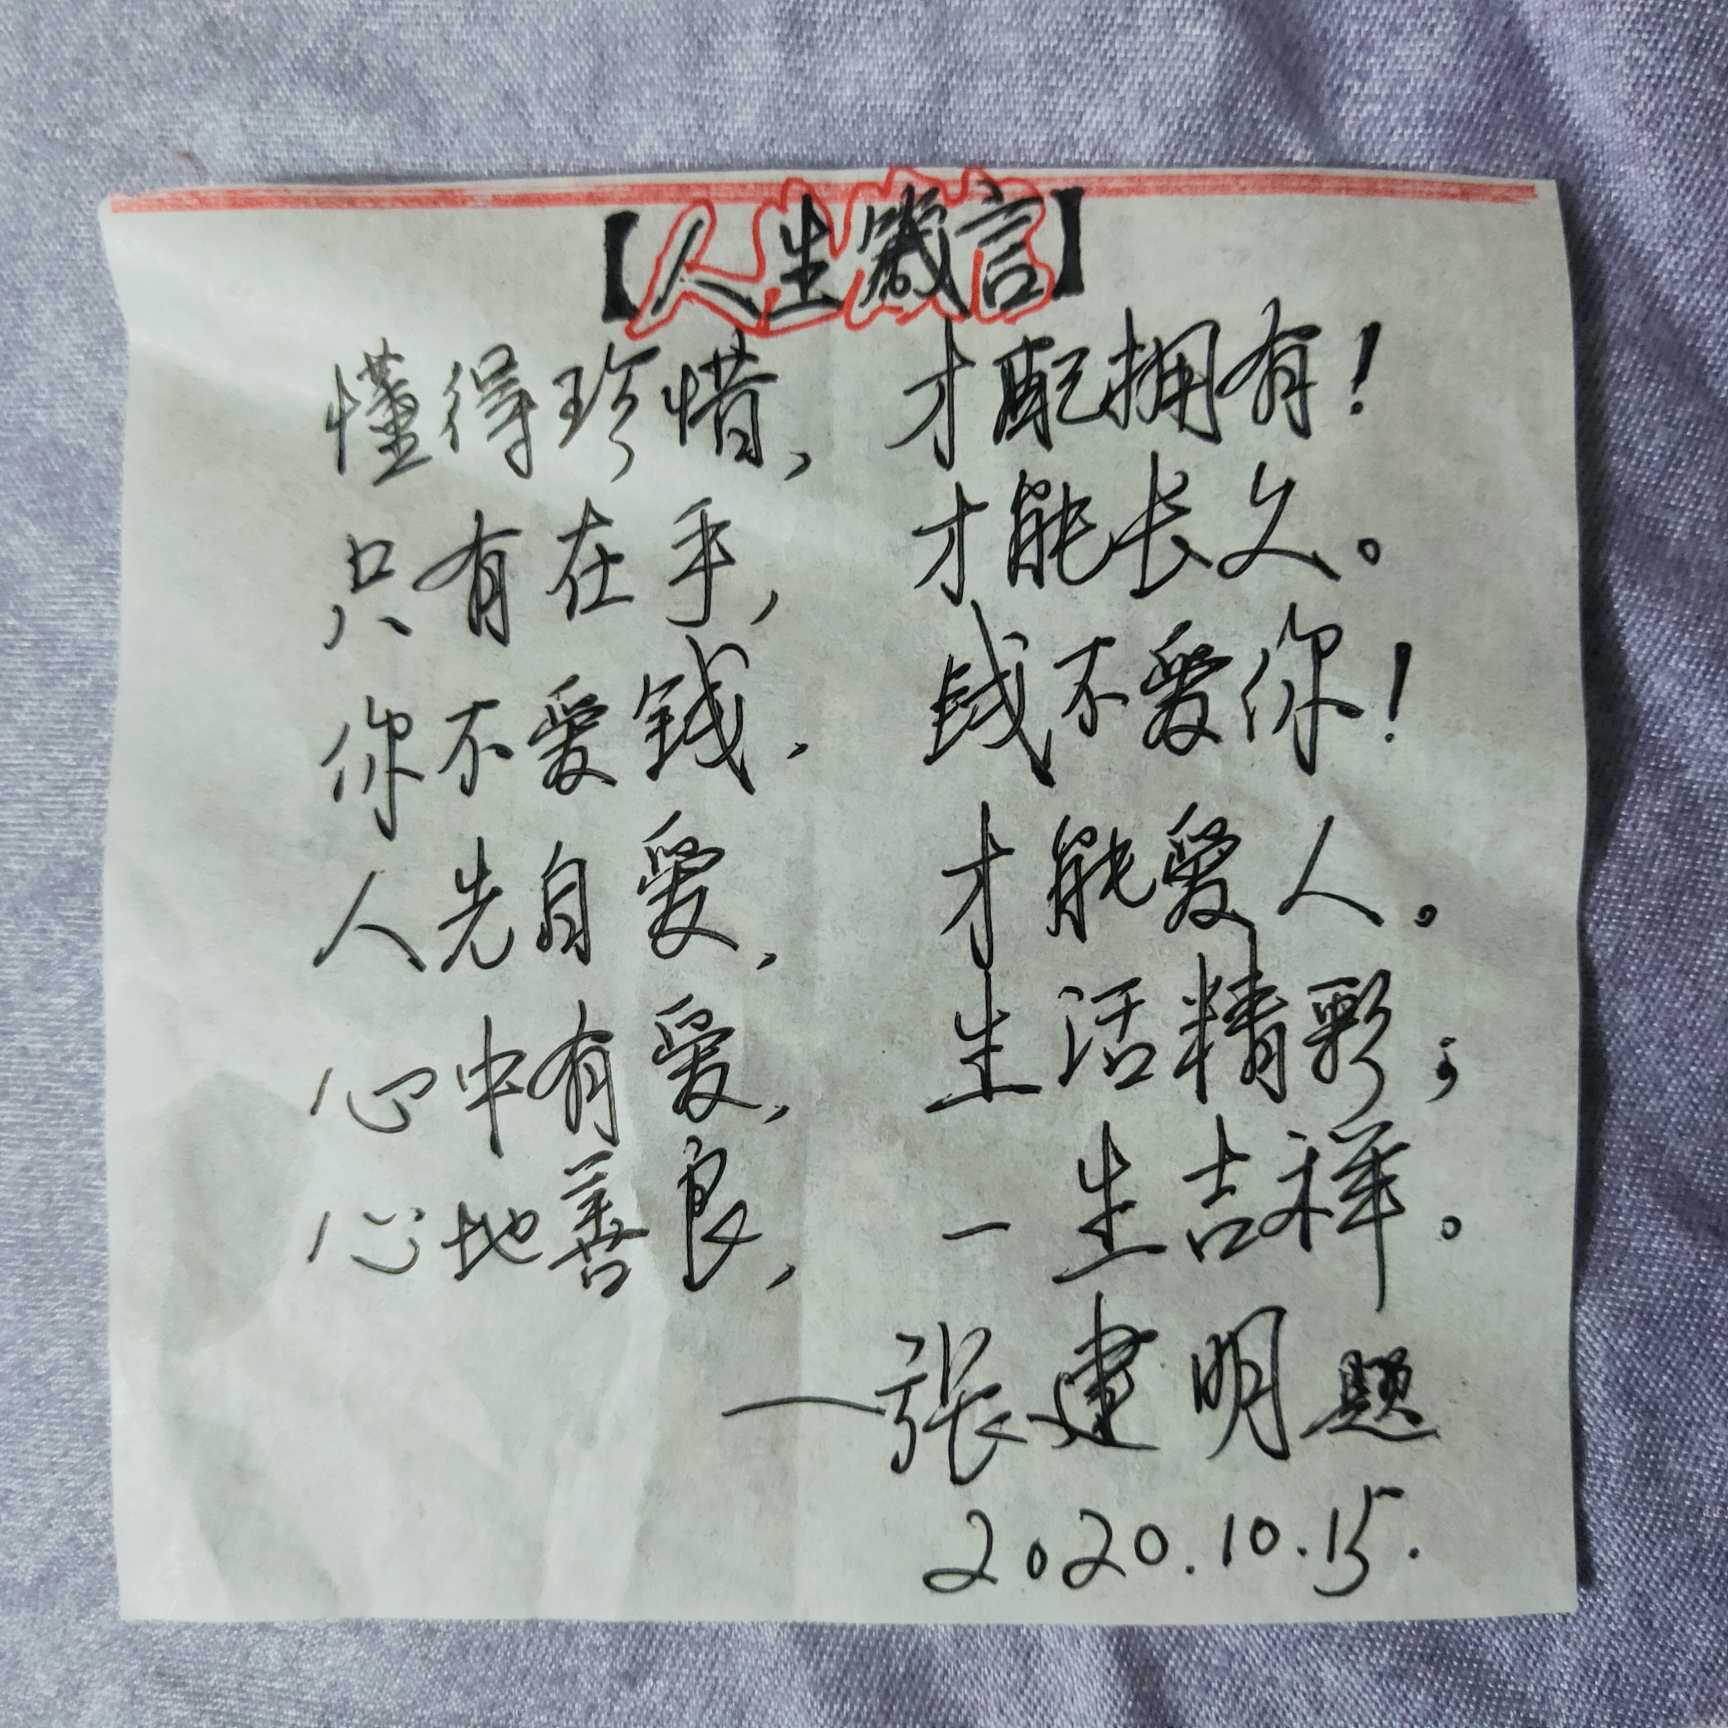 【人生箴言】
懂得珍惜,才配拥有!
只有在手,才能长久。
你不爱钱,钱不爱你!
人先自爱,才能爱人。
心中有爱,生活精彩;
心地善良,一生吉祥。
—张建明题
2020.10.15.